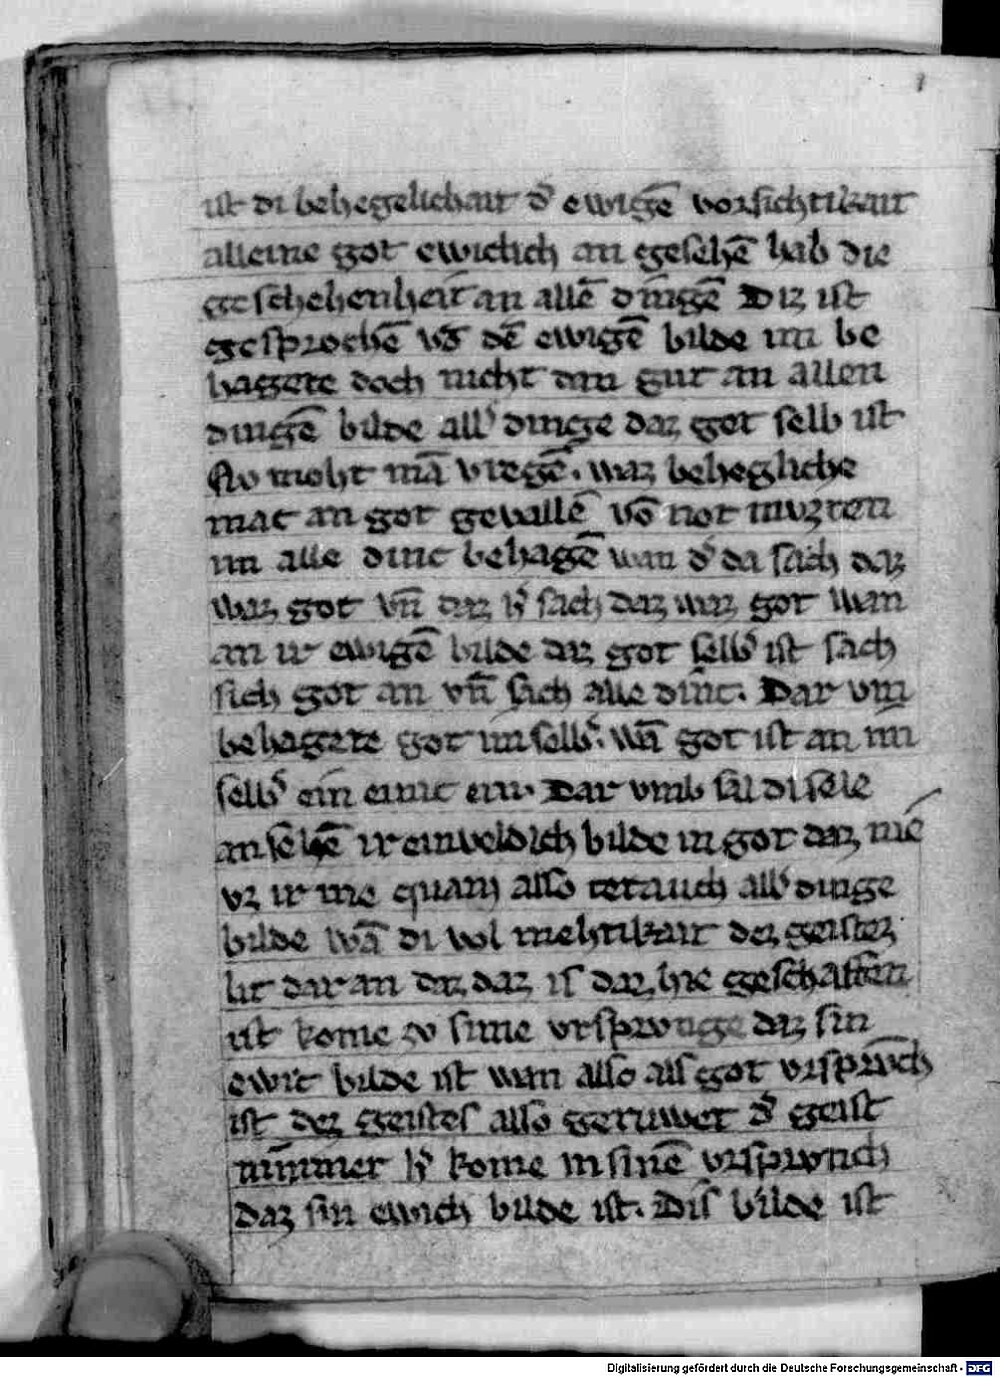 ist di behegelichait d' ewigē vorsichtikait
alleine got ewiclich an gesehē hab die
geschehenheit an allē dingē Diz ist
gesprochē vō dē ewigē bilde im be
hagete doch nicht dan gut an allen
dingē bilde all' dinge daz got selb ist
Nv moht mā vregē. waz behegliche
mac an got gevallē vō not mvzten
im alle dinc behagē wan d' da sach daz
waz got vn̄ daz h' sach daz waz got wan
an ir ewigē bilde daz got selb' ist sach
sich got an vn̄ sach alle dinc. Dar vm
behagete got im selb'. wā got ist an im
selb' ein einic ein. Dar vmb sal di sele
an sehē ir einveldich bilde in got daz nie
vz ir nie quam also tet auch all' dinge
bilde wā di vol mehtikait dez geistez
lit dar an daz daz is daz hie geschaffen
ist kome zv sime vrsprvnge daz sin
ewic bilde ist wan also als got vrsprvnch
ist dez geistes also geruwet d' geist
nimmer h' kome in sinē vrsprvnch
daz sin ewich bilde ist. Dis bilde ist
Digitalisierung gefördert durch die Deutsche Forschungsgemeinschaft - DFG